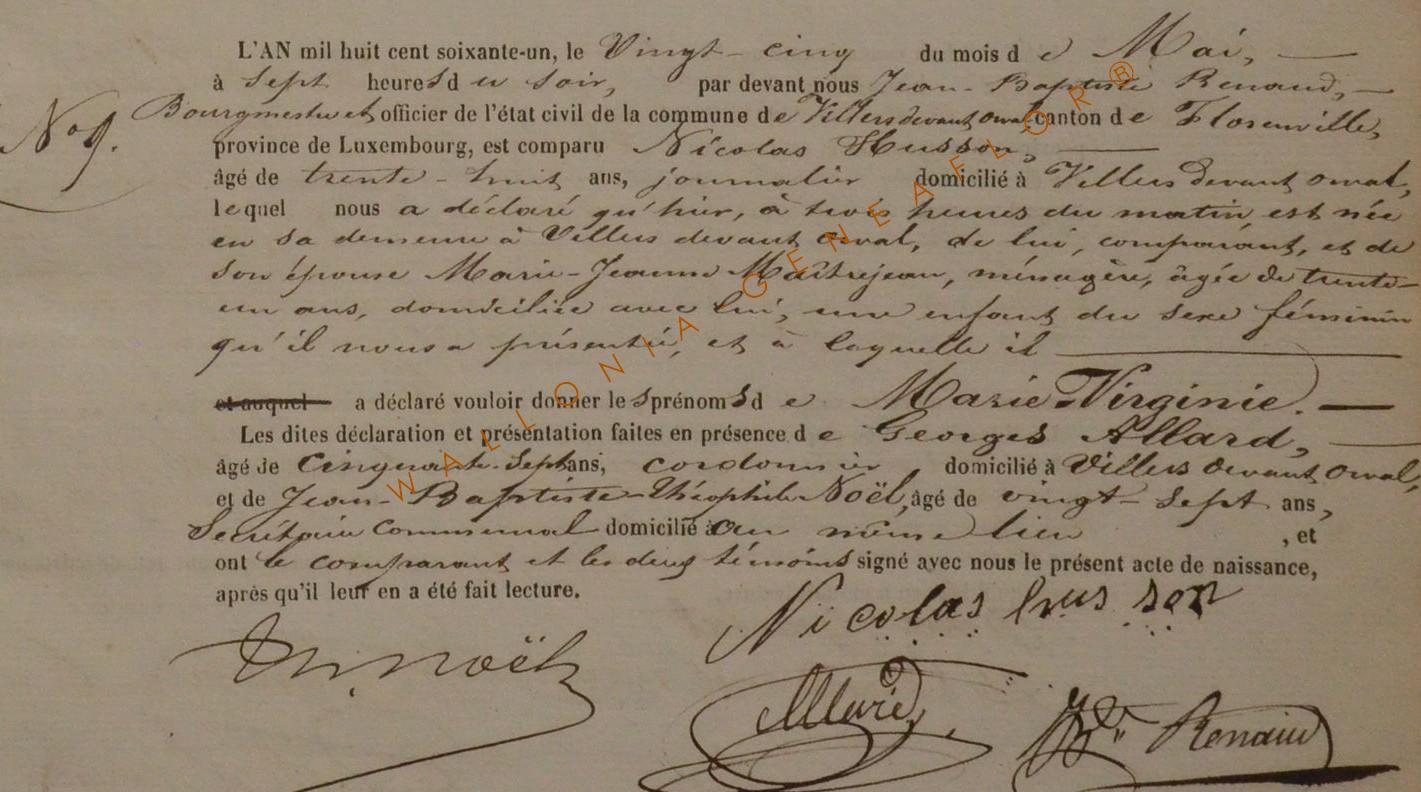 L'AN mil huit cent soixante-un, le Vingt-cinq du mois d e Mai,
à sept heures du soir, par devant nous Jean-Baptiste Renaud,
Bourgmestre et officier de l'état civil de la commune de Villers devant orval canton de Florenville,
N° 9.
province de Luxembourg, est comparu Nicolas Husson,
âgé de trente-huit ans, journalier domicilié à Villers devant orval,
lequel nous a déclaré qu'hier, à trois heures du matin est née
en sa demeure à Villers devant orval, de lui, comparant, et de
son épouse Marie-Jeanne Maîtrejean, ménagère, âgée de trente-
un ans, domiciliée avec lui, une enfant du sexe féminin
qu'il nous a présentée, et à laquelle il
et auquel a déclaré vouloir donner les prénoms de Marie Virginie.
Les dites déclaration et présentation faites en présence de Georges Allard,
âgé de Cinquante-Sept ans, cordonnier domicilié à Villers devant orval,
et de Jean-Baptiste-Théophile Noël, âgé de vingt-sept ans,
Secrétaire Communal domicilié à au même lieu, et
ont le comparant et les deux témoins signé avec nous le présent acte de naissance,
après qu'il leur en a été fait lecture.
Nicolas husson
Noël
Allard
Renaud
WALLONIA GENEAFLOR®